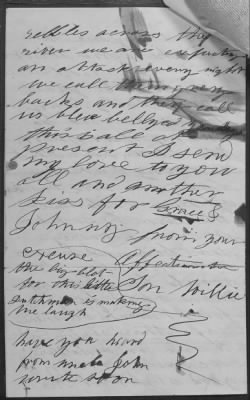 rebbles across the
river we are expecting
an attack every night
we call them grey
backs and they call
us blew bellyes
this is all at
present I send
my love to you
all and another
kiss for Grace &
Johnny from your
Affectionate
Son Willie
excuse
the big blot
for this little
dutchman is making
me laugh
have you heard
from uncle John
write soon